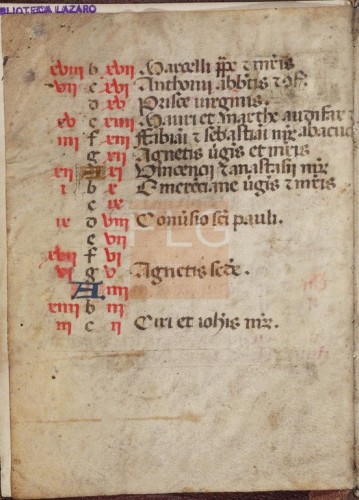 BLIOTECA LAZARO
xviii b xvii Marcelli ppe et mris
vii c xvi Anthonii abbtis et 9f.
d xv Prisce virginis.
xv e xiiii Mauri et marthe audifax et
iiii f xiii ffabiãi et sebastiãi mr abacuc
g xii Agnetis ũgis et mris
xii A xi Vincencij et anastasij mr
i b x Emerẽciane ũgis et mris
c ix
ix d viii Conũsio sci pauli.
e vii
xvii f vi
vi g v Agnetis scđe.
A iiii
xiiii b iii
iii c ii Ciri et iohis mr.
FLG